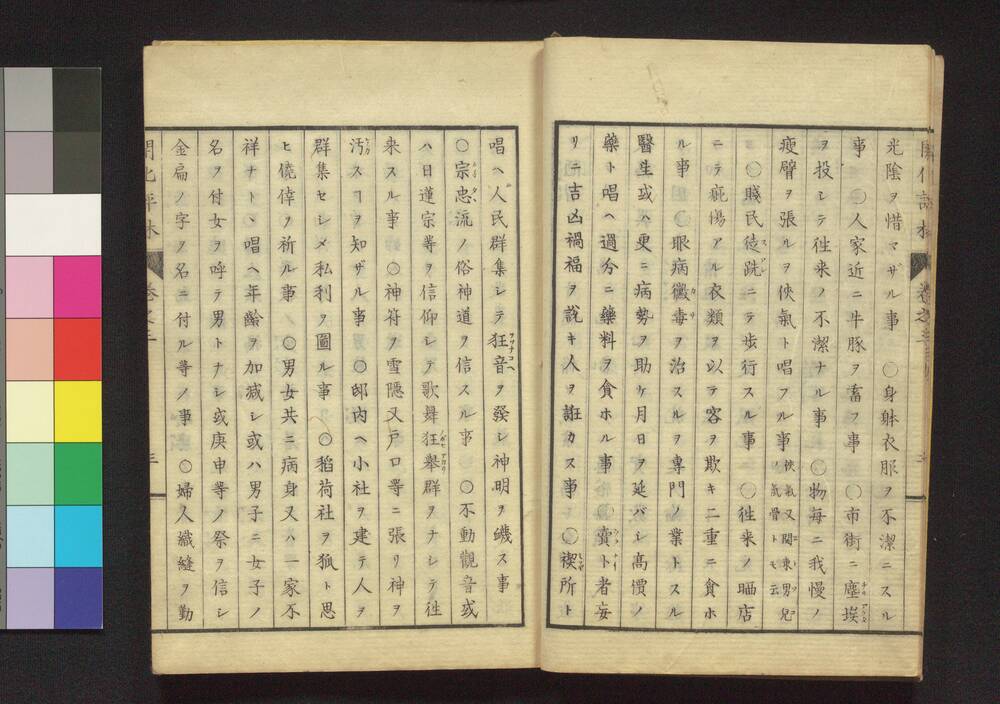 光陰ヲ惜マザル事　○身躰衣服ヲ不潔ニスル
事　○人家近ニ牛豚ヲ畜フ事　○市街ニ塵埃
ヲ投シテ徃来ノ不潔ナル事　○物毎ニ我慢ノ
瘦臂ヲ張ルヲ俠氣ト唱フル事 俠氣又関東男児ノ氣骨トモ云
○賤民徒跣ニテ歩行スル事　○徃来ノ晒店
ニテ疵傷アル衣類ヲ以テ客ヲ欺キ二重ニ貪ホ
ル事　○眼病黴毒ヲ治スルヲ専門ノ業トスル
醫生或ハ更ニ病勢ヲ助ケ月日ヲ延バシ高價ノ
藥ト唱ヘ過分ニ藥料ヲ貪ホル事　○賣卜者妄
リニ吉凶禍福ヲ說キ人ヲ誑カス事　○禊所ト
唱ヘ人民群集シテ狂音ヲ發シ神明ヲ禨ス事
○宗忠流ノ俗神道ヲ信スル事　○不動觀音或
ハ日蓮宗等ヲ信仰シテ歌舞狂舉群ヲナシテ徃
来スル事　○神符ヲ雪隱又戸口等ニ張リ神ヲ
汚スヿヲ知ザル事　○邸内ヘ小社ヲ建テ人ヲ
群集セシメ私利ヲ圖ル事　○稻荷社ヲ狐ト思
ヒ僥倖ヲ祈ル事　○男女共ニ病身又ハ一家不
祥ナトヽ唱ヘ年齡ヲ加減シ或ハ男子ニ女子ノ
名ヲ付女ヲ呼テ男トナシ或庚申等ノ祭ヲ信シ
金扁ノ字ヲ名ニ付ル等ノ事　○婦人織縫ヲ勤